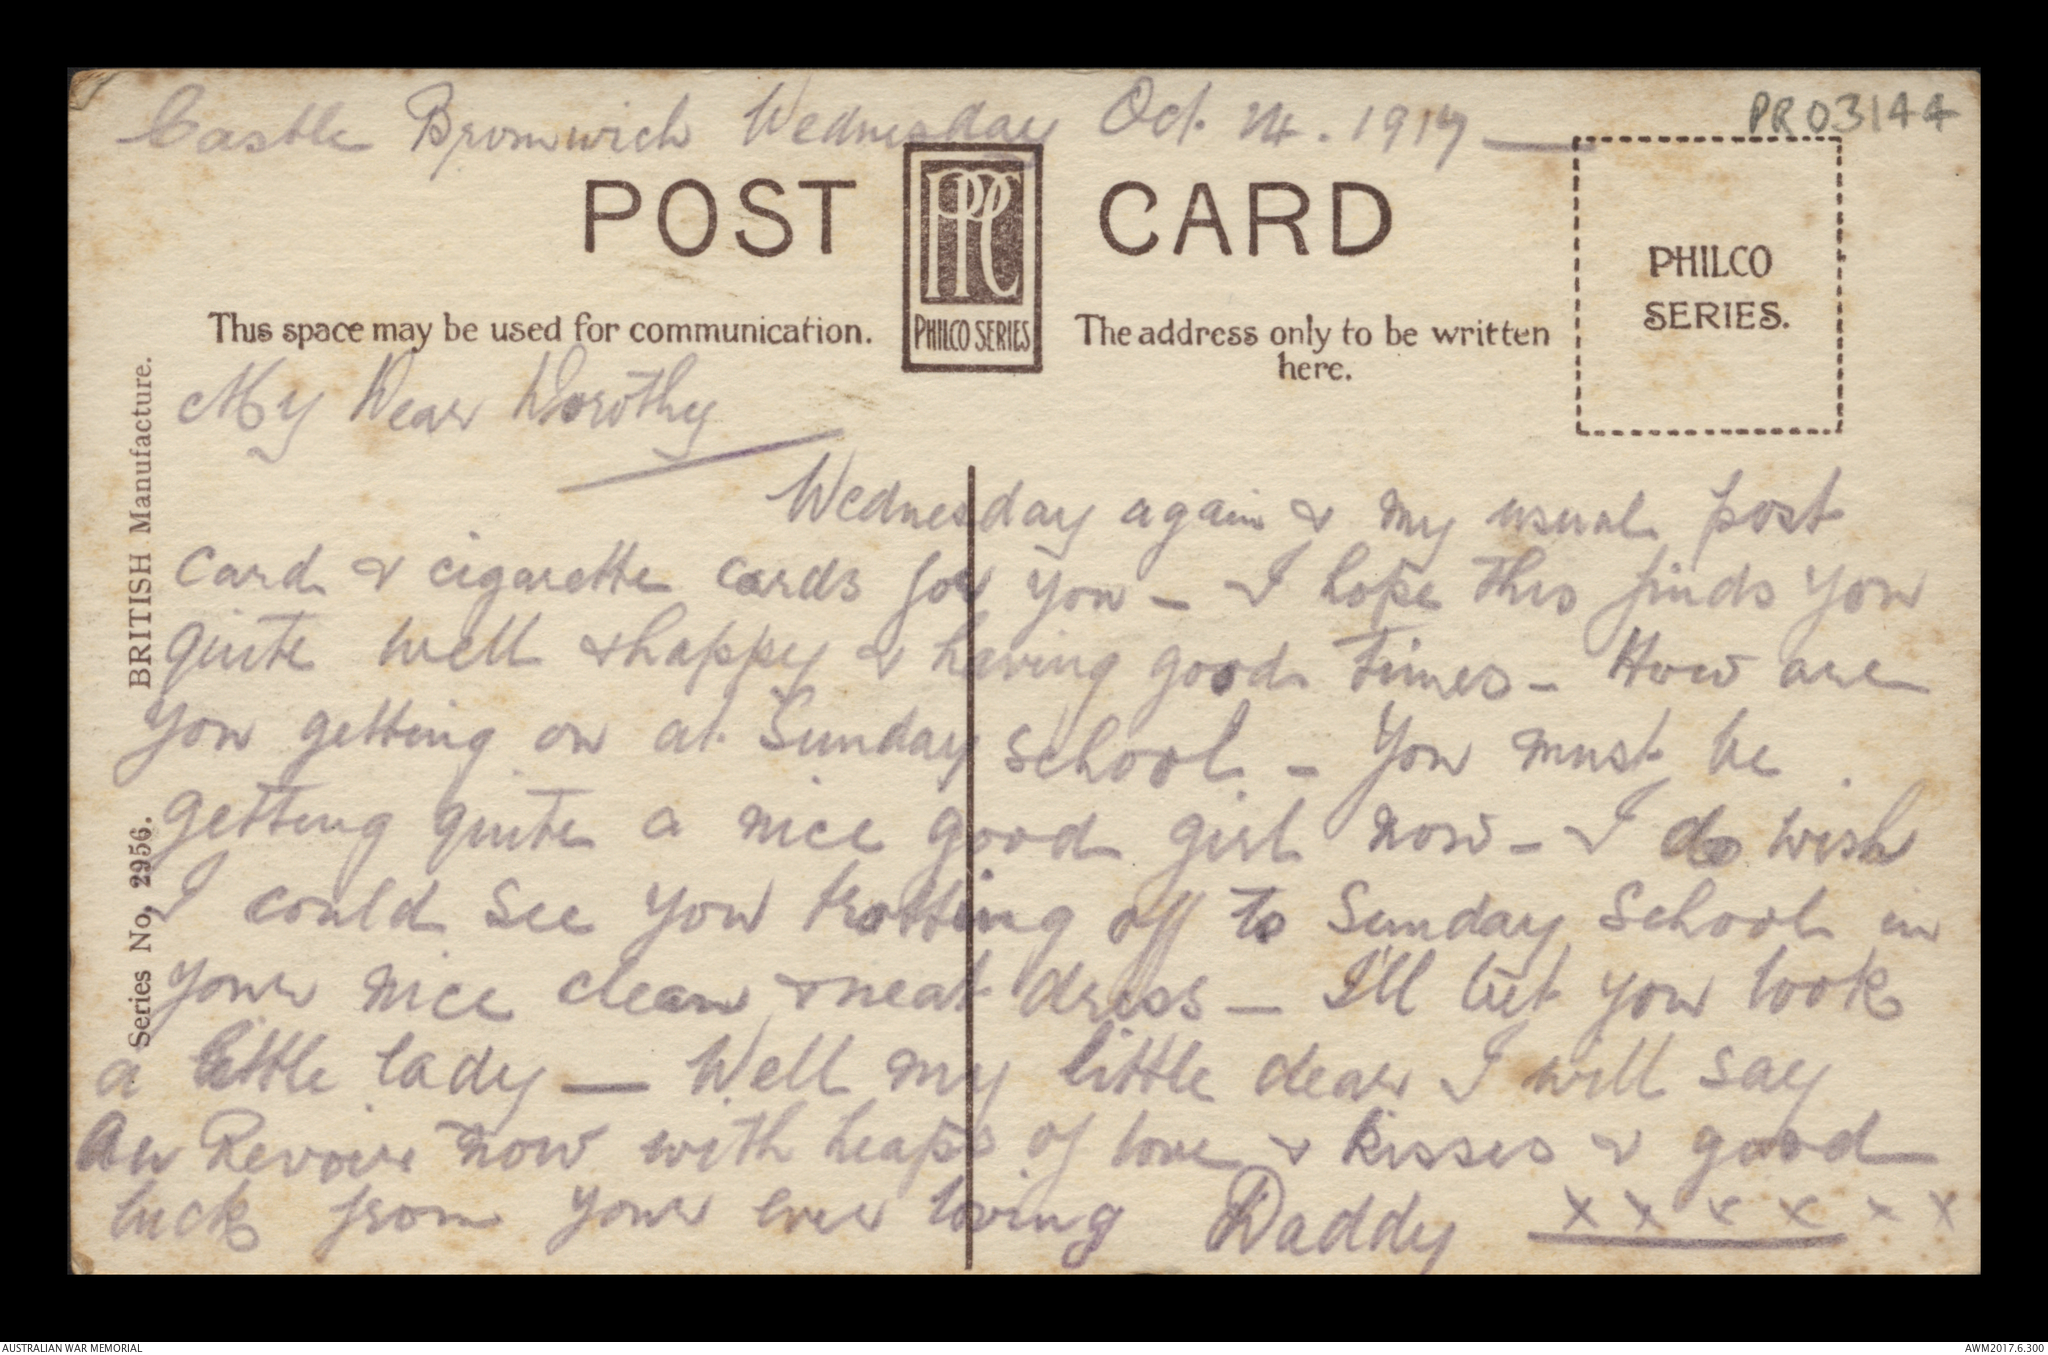 Castle Bromwich Wednesday Oct. 24. 1917
PR03144
POST CARD
PPC
PHILCO SERIES
PHILCO
SERIES.
This space may be used for communication.
The address only to be written
here.
BRITISH Manufacture.
Series No. 2956.
My Dear Dorothy
Wednesday again & my usual post
card & cigarette cards for you - I hope this finds you
quite well & happy & having good times - How are
you getting on at Sunday school - You must be
getting quite a nice good girl now - I do wish
I could see you trotting off to Sunday School in
your nice clean & neat dress - I'll bet you look
a little lady - Well my little dear I will say
Au Revoir now with heaps of love & kisses & good
luck from your ever loving Daddy x x x x x x
AUSTRALIAN WAR MEMORIAL
AWM2017.6.300